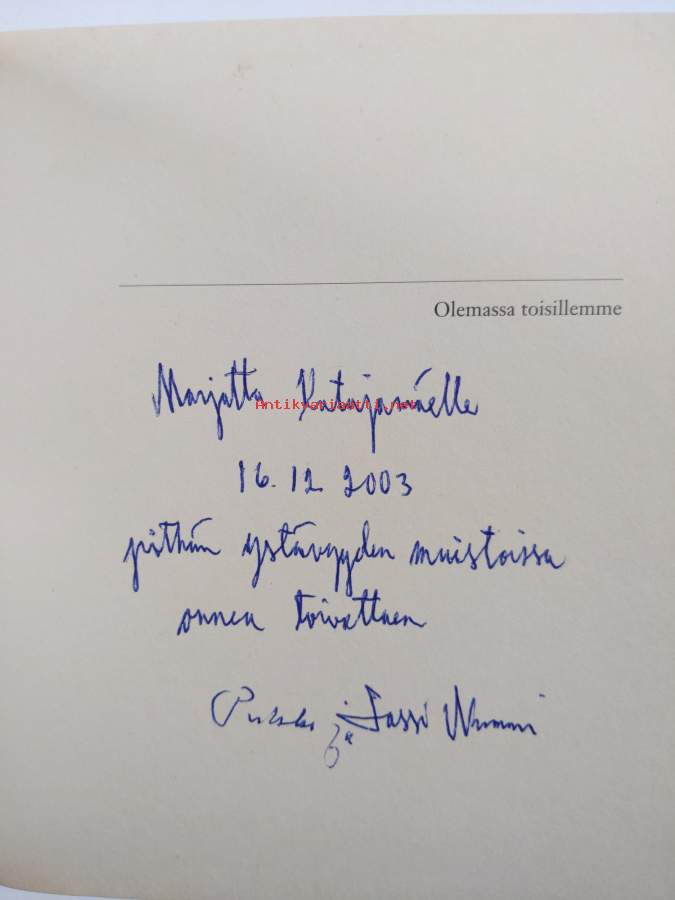 Olemassa toisillemme
Marjatta Katajamäelle
Antikvariaatti.net
16.12 2003
pitkän ystävyyden muistoissa
onnea toivottaen
Pirkko ja Lassi Nummi